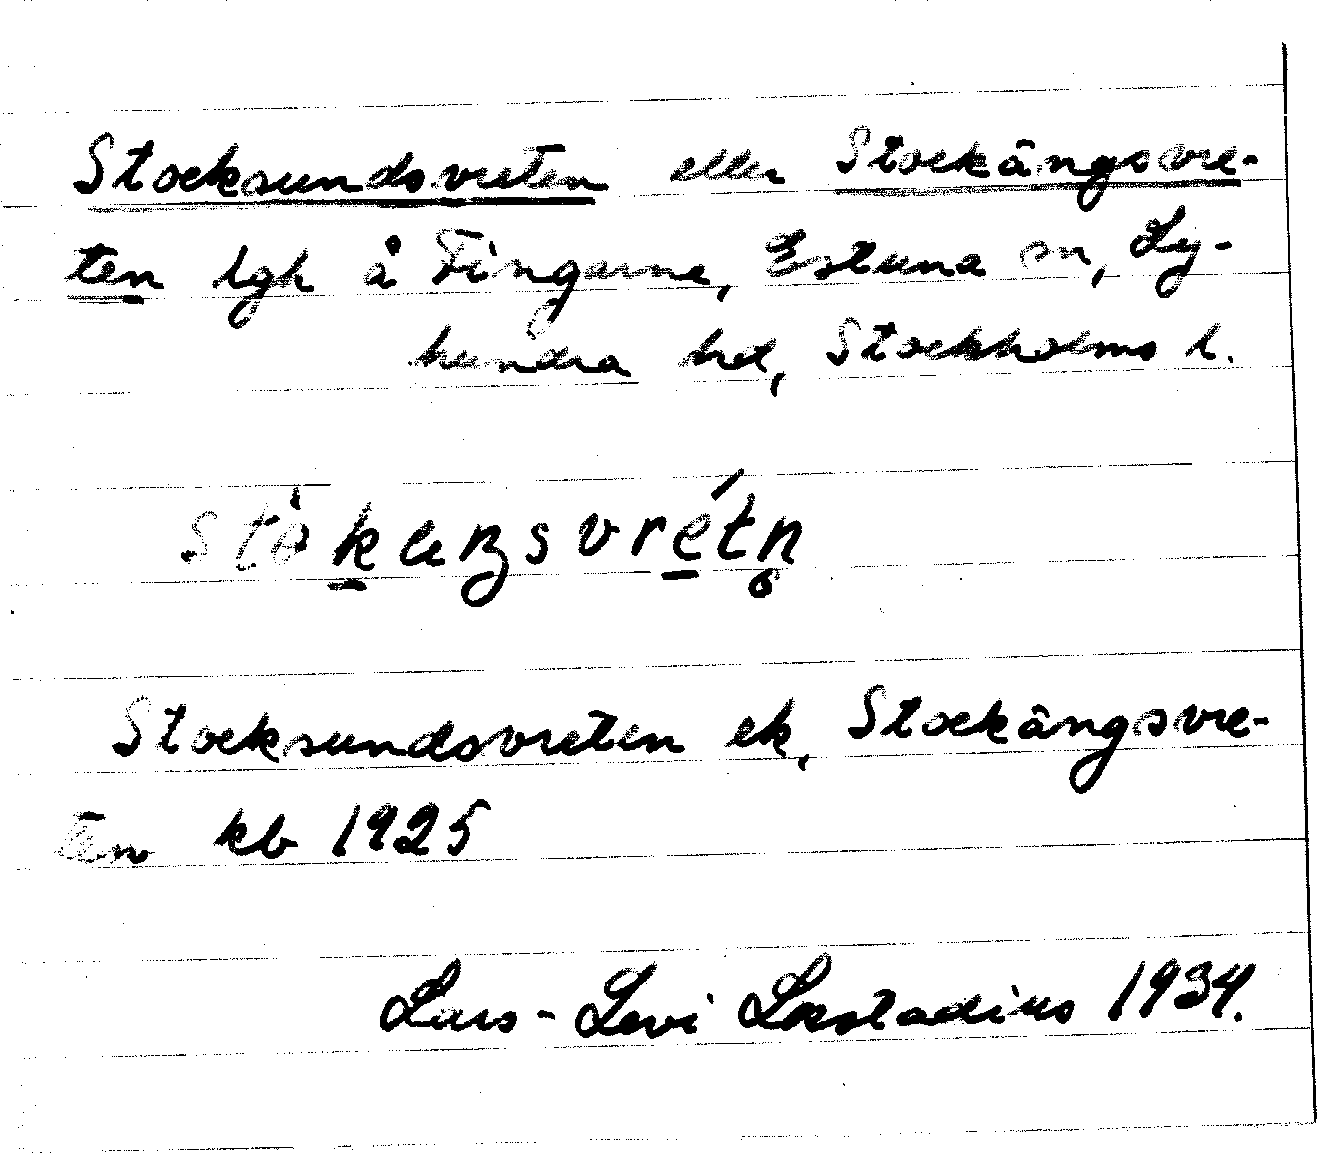 Stocksundsvreten eller Stockängsvre-
ten lgh å Fingarne, Estuna sn, Ly-
hundra hd, Stockholms l.
stòkaŋsvrétn̥
Stocksundsvreten ek, Stockängsvre-
ten kb 1925
Lars-Levi Læstadius 1934.